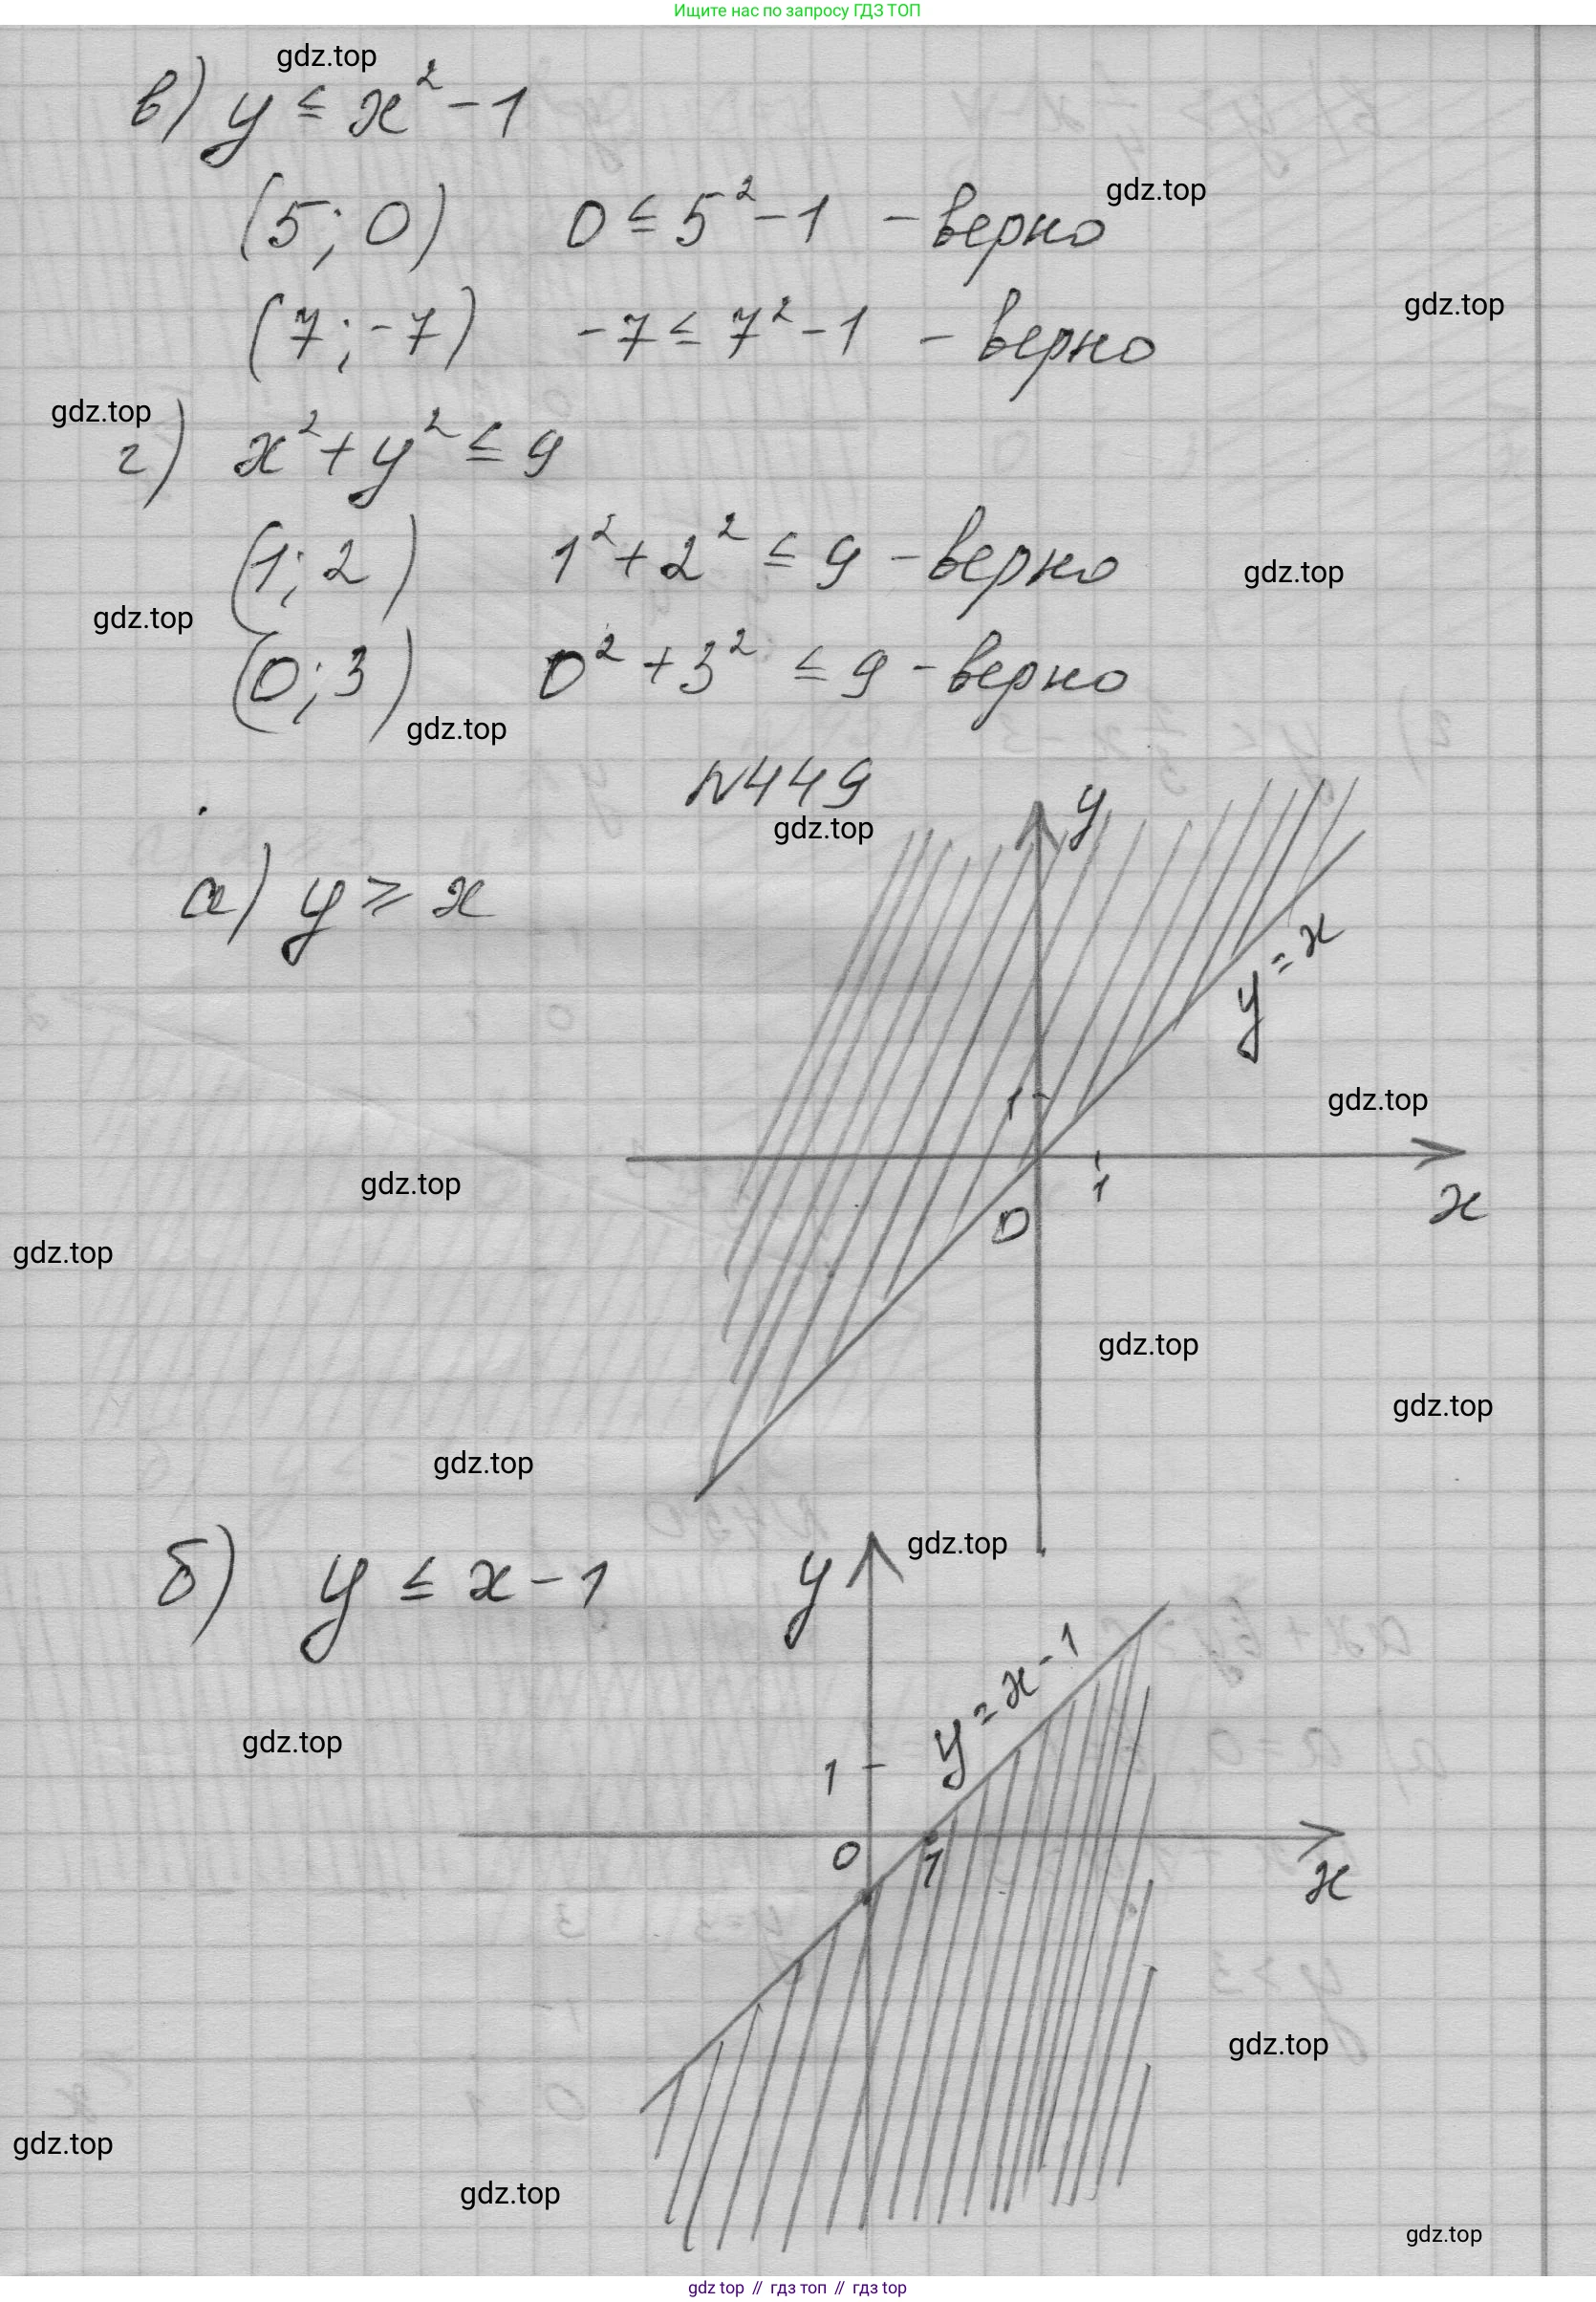 Ищите нас по запросу ГДЗ ТОП
gdz.top
в) y ≤ x² - 1
gdz.top
(5; 0) 0 ≤ 5² - 1 - верно
gdz.top
(7; -7) -7 ≤ 7² - 1 - верно
gdz.top
г) x² + y² ≤ 9
(1; 2) 1² + 2² ≤ 9 - верно
gdz.top
gdz.top
(0; 3) 0² + 3² ≤ 9 - верно
gdz.top
N449
gdz.top
y
а) y ≥ x
y = x
1
gdz.top
gdz.top
1
x
0
gdz.top
gdz.top
gdz.top
gdz.top
gdz.top
б) y ≤ x - 1
y
y = x - 1
gdz.top
1
0
1
x
gdz.top
gdz.top
gdz.top
gdz.top
gdz top // гдз топ // гдз top